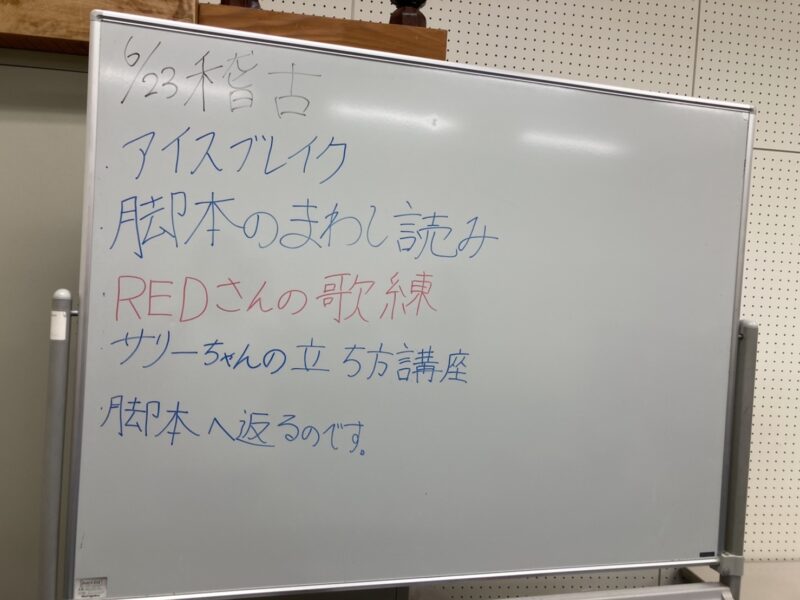 6/23 稽古
・アイスブレイク
・脚本のまわし読み
・REDさんの歌練
・サリーちゃんの立ち方講座
・脚本へ返るのです。